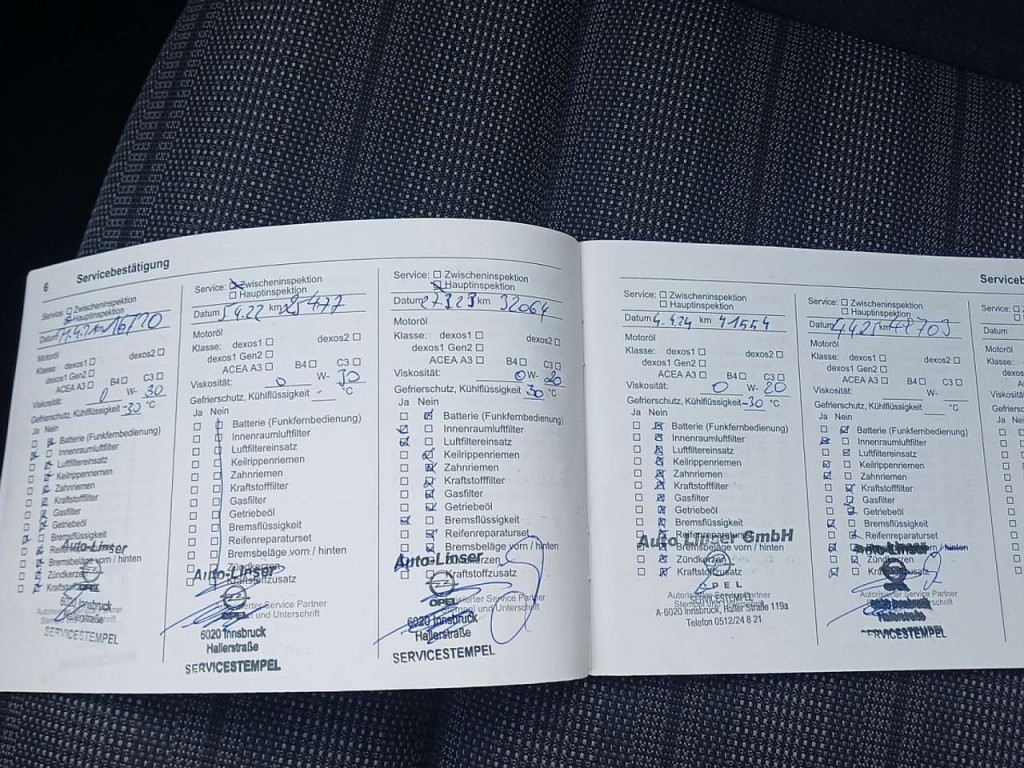 6 Servicebestätigung
Service: Zwischeninspektion
Hauptinspektion
Datum km 16120
Motoröl
Klasse: dexos1 dexos2
dexos1 Gen2
ACEA A3 B4 C3
Viskosität: 0 W- 30
Gefrierschutz, Kühlflüssigkeit -30 °C
Ja Nein
Batterie (Funkfernbedienung)
Innenraumluftfilter
Luftfiltereinsatz
Keilrippenriemen
Zahnriemen
Kraftstofffilter
Gasfilter
Getriebeöl
Bremsflüssigkeit
Auto-Linser
Zündkerzen
OPEL
6020 Innsbruck
Hallerstraße
SERVICESTEMPEL
Service: Zwischeninspektion
Hauptinspektion
Datum 5.4.22 km 25477
Motoröl
Klasse: dexos1 dexos2
dexos1 Gen2
ACEA A3 B4 C3
Viskosität: 0 W- 30
Gefrierschutz, Kühlflüssigkeit - °C
Ja Nein
Batterie (Funkfernbedienung)
Innenraumluftfilter
Luftfiltereinsatz
Keilrippenriemen
Zahnriemen
Kraftstofffilter
Gasfilter
Getriebeöl
Bremsflüssigkeit
Reifenreparaturset
Bremsbeläge vorn / hinten
Zündkerzen
Auto-Linser
Kraftstoffzusatz
OPEL
6020 Innsbruck
Hallerstraße
SERVICESTEMPEL
Service: Zwischeninspektion
Hauptinspektion
Datum 27323 km 32064
Motoröl
Klasse: dexos1 dexos2
dexos1 Gen2
ACEA A3 B4 C3
Viskosität: 0 W- 20
Gefrierschutz, Kühlflüssigkeit 30 °C
Ja Nein
Batterie (Funkfernbedienung)
Innenraumluftfilter
Luftfiltereinsatz
Keilrippenriemen
Zahnriemen
Kraftstofffilter
Gasfilter
Getriebeöl
Bremsflüssigkeit
Reifenreparaturset
Bremsbeläge vorn / hinten
Auto-Linser
Zündkerzen
Kraftstoffzusatz
OPEL
6020 Innsbruck
Hallerstraße
SERVICESTEMPEL
Service: Zwischeninspektion
Hauptinspektion
Datum 4.4.24 km 41554
Motoröl
Klasse: dexos1 dexos2
dexos1 Gen2
ACEA A3 B4 C3
Viskosität: 0 W- 20
Gefrierschutz, Kühlflüssigkeit -30 °C
Ja Nein
Batterie (Funkfernbedienung)
Innenraumluftfilter
Luftfiltereinsatz
Keilrippenriemen
Zahnriemen
Kraftstofffilter
Gasfilter
Getriebeöl
Bremsflüssigkeit
Reifenreparaturset
Auto Linser GmbH
Bremsbeläge vorn / hinten
Zündkerzen
Kraftstoffzusatz
OPEL
A-6020 Innsbruck, Haller Straße 119a
Telefon 0512/24 8 21
Serviceb
Service: Zwischeninspektion
Hauptinspektion
Datum km 48703
Motoröl
Klasse: dexos1 dexos2
dexos1 Gen2
ACEA A3 B4 C3
Viskosität: W-
Gefrierschutz, Kühlflüssigkeit °C
Ja Nein
Batterie (Funkfernbedienung)
Innenraumluftfilter
Luftfiltereinsatz
Keilrippenriemen
Zahnriemen
Kraftstofffilter
Gasfilter
Getriebeöl
Bremsflüssigkeit
Reifenreparaturset
hinten
Zündkerzen
Kraftstoffzusatz
OPEL
Hallerstraße
SERVICESTEMPEL
Service:
Datum
Motoröl
Klasse:
Viskosität:
Gefrierschutz
Ja Nein